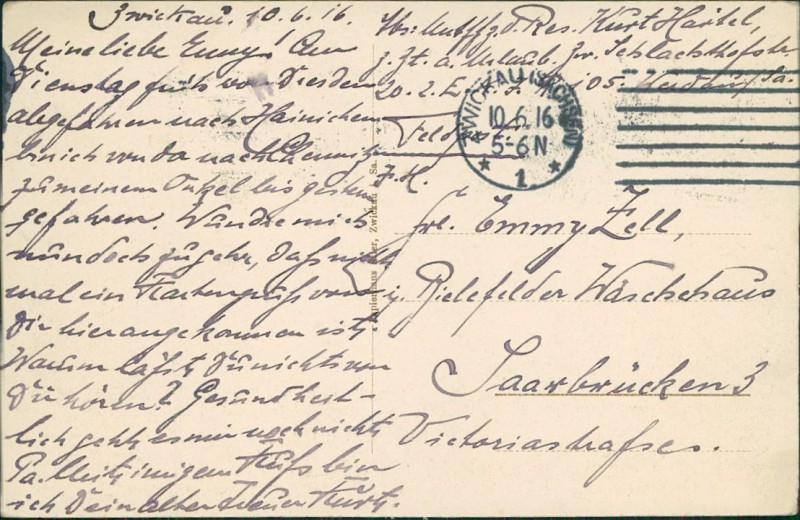 Zwickau. 10.6.16.
Meine liebe Emmy! Am
Dienstag früh von Dresden
abgefahren nach Hainichen
bin ich von da nach Chemnitz
zu meinem Onkel bis gestern
gefahren. Wundre mich
nun doch zu sehr, daß nicht
mal ein Kartengruß von
Dir hier angekommen ist.
Warum läßt Du nichts von
Dir hören? Gesundheit-
lich geht es mir noch nicht
Pa. Mit innigem Kuß bin
ich Dein alter treuer Kurt.
Abs: Untffz. d. Res. Kurt Härtel,
z. Zt. a. Urlaub. Zw. Schlachthofstr.
20. 2. E. 105.
Feldpost
F. H.
ZWICKAU (SACHSEN)
10.6.16
5-6N
* 1. *
Frl. Emmy Zell,
i. Bielefelder Wäschehaus
Saarbrücken 3
Victoriastraße.
Zwickau i. Sa.